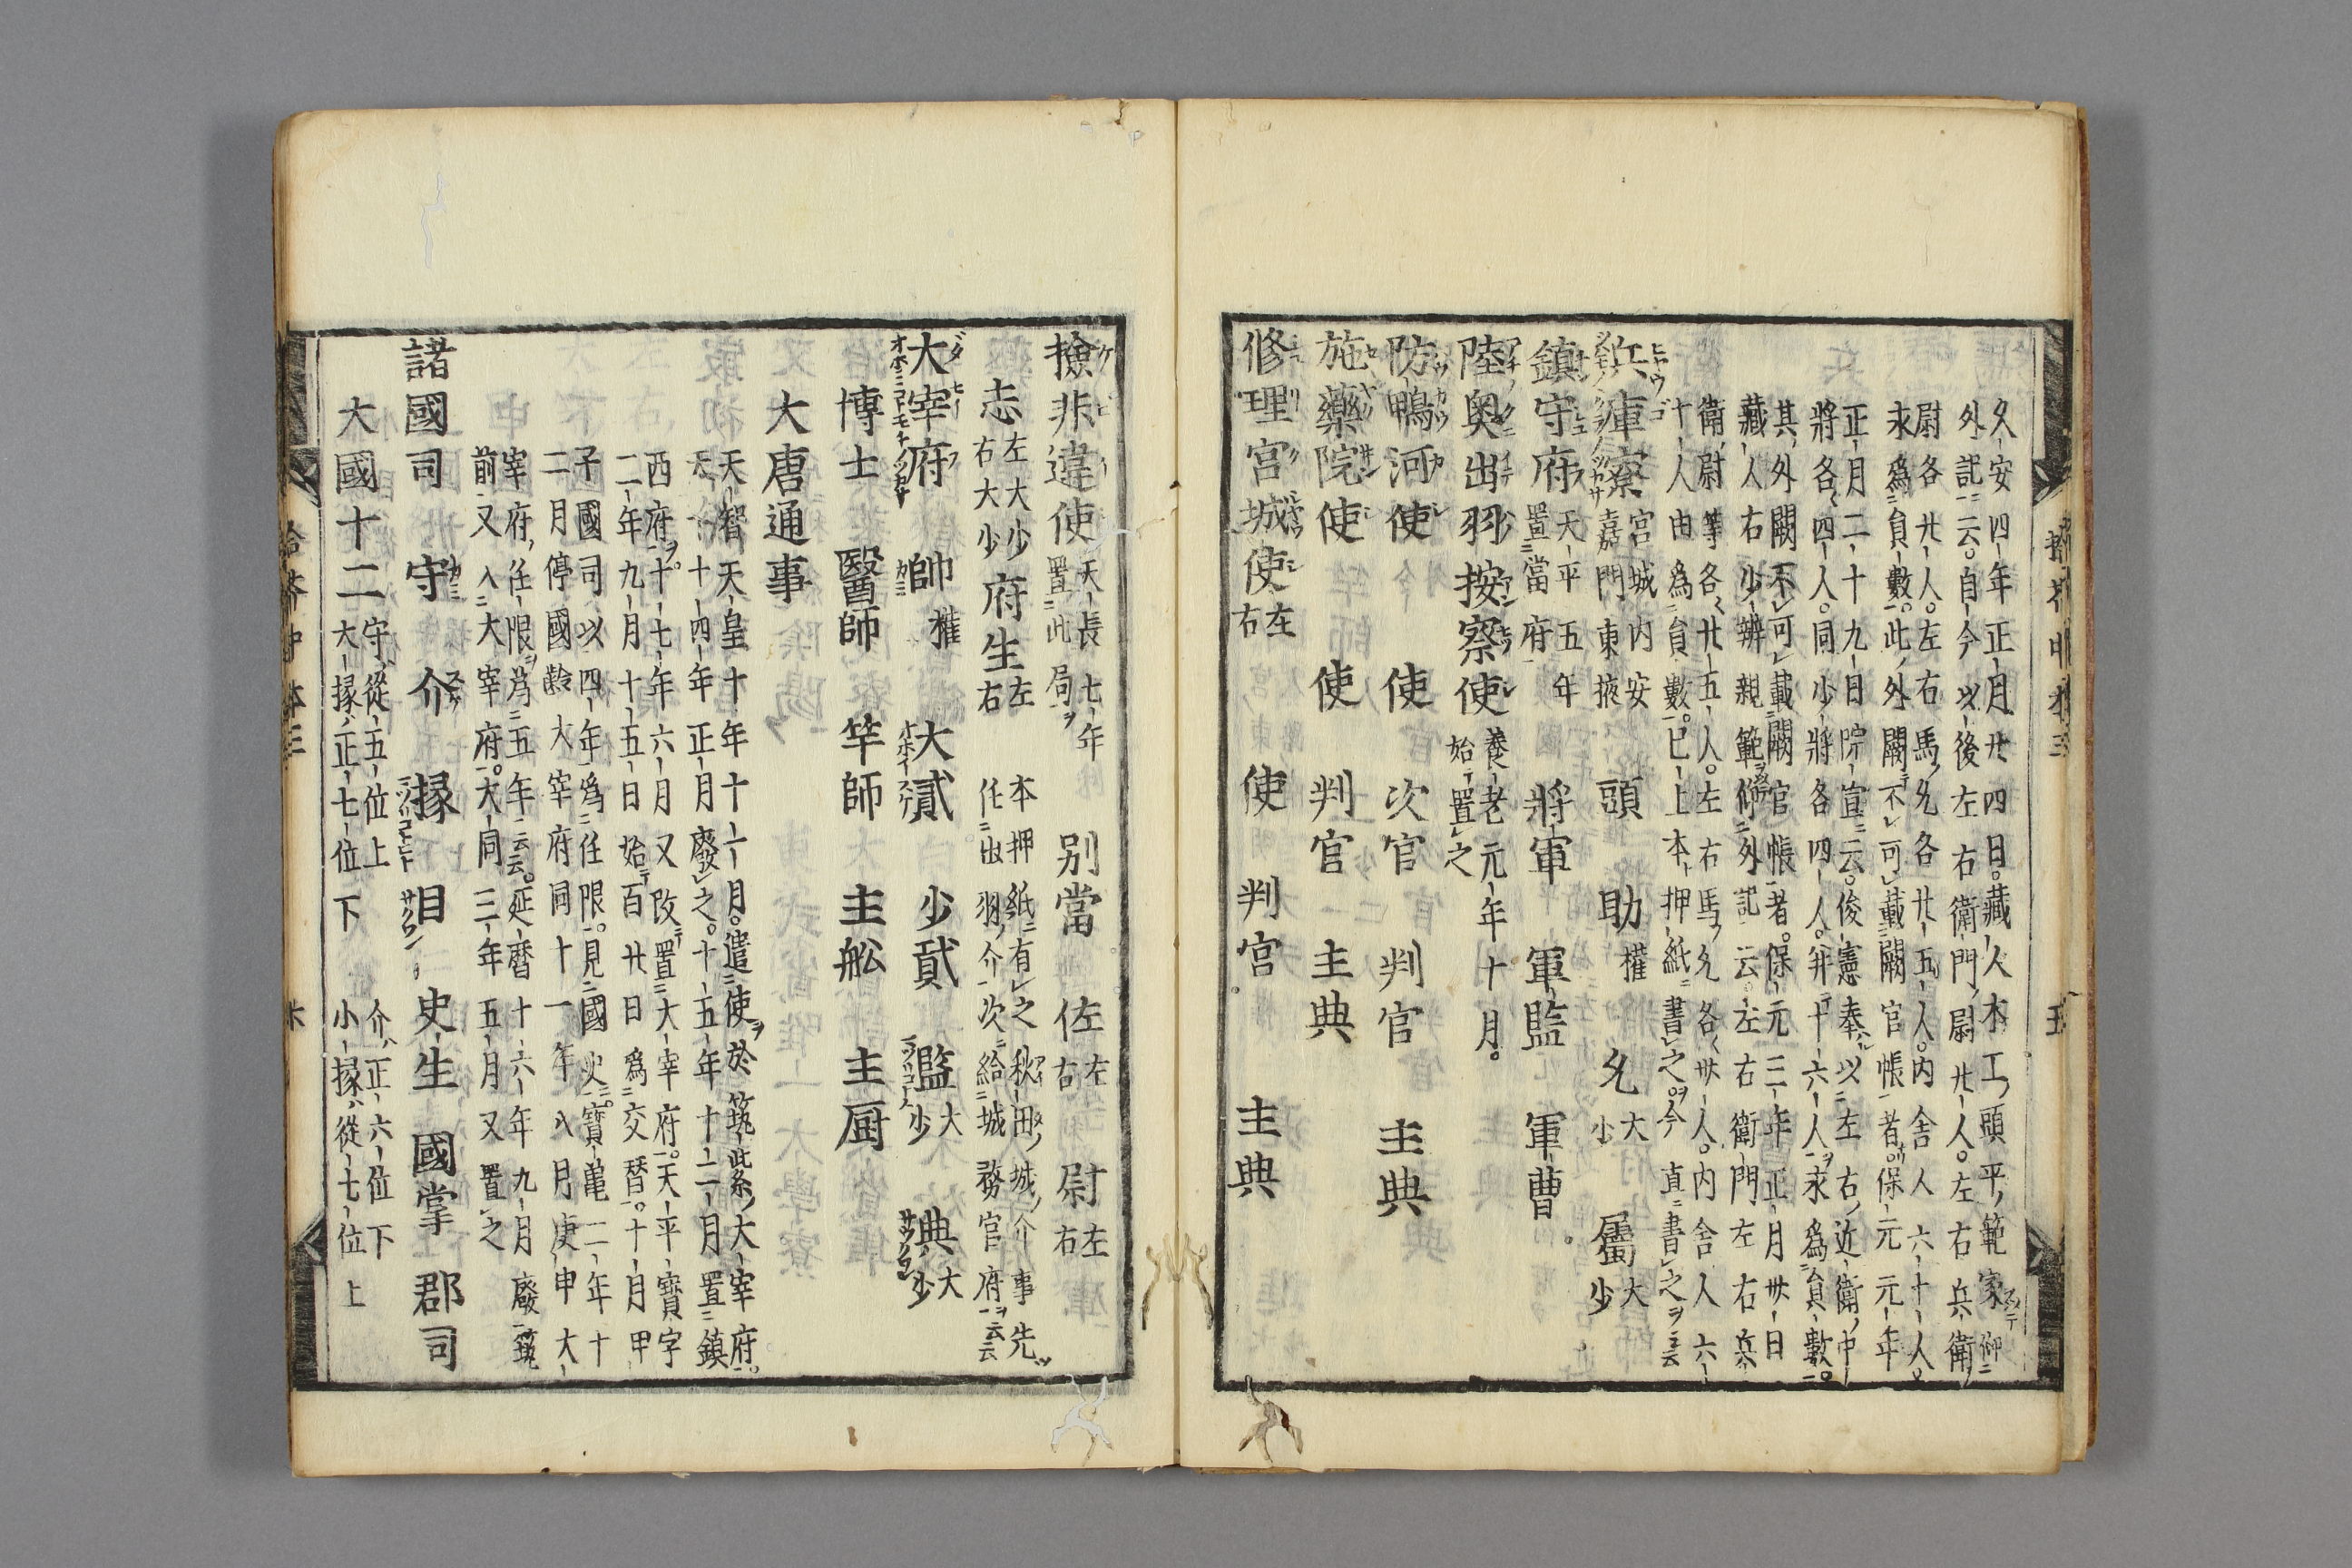 久安四年正月廿四日。藏人木工頭平範家仰
外記云。自今以後左右衛門尉廿人。左右兵衛
尉各廿人。左右馬允各廿五人。内舎人六十人。
永爲員數。此外闕不可載闕官帳者。保元元年
正月二十九日院宣云。俊憲奉以左右近衛中
將各四人。同少將各四人。并十六人永爲員數。
其外闕不可載闕官帳者。保元三年正月廿日
藏人右少辨親範仰外記云。左右衛門左右兵
衛尉等各廿五人。左右馬允各廿人。内舎人六
十人由爲員數。已上本押紙書之今直書之云云
兵庫寮 宮城内安
嘉門東掖 頭 助 權 允 大
少 屬 大
少
鎮守府 天平五年
置當府 將軍 軍監 軍曹
陸奥出羽按察使 養老元年十月。
始置之
防鴨河使 使 次官 判官 主典
施藥院使 使 判官 主典
修理宮城使 左
右 使 判官 主典
撿非違使 天長七年
置此局 別當 佐 左
右 尉 左
右
志 左大少
右大少 府生 左
右 本押紙有之秋田城介事先
任出羽介次給城務官府云云
大宰府 帥 權 大貳 少貳 監 大
少 典 大
少
博士 醫師 竿師 主舩 主厨
大唐通事
天智天皇十年十一月。遣使於筑紫大宰府。
天十四年正月廢之。十五年十二月置鎮
西府。十七年六月又改置大宰府。天平寶字
二年九月十五日始百廿日爲交替。十月甲
子國司以四年爲任限。見國史。寶亀二年十
二月停國齢大宰府同十一年八月庚申大
宰府任限爲五年云云。延暦十六年九月廢筑
前又入大宰府。大同三年五月又置之
諸國司 守 介 掾 目 史生 國掌 郡司
大國十二 守從五位上 介正六位下
大掾正七位下 小掾從七位上